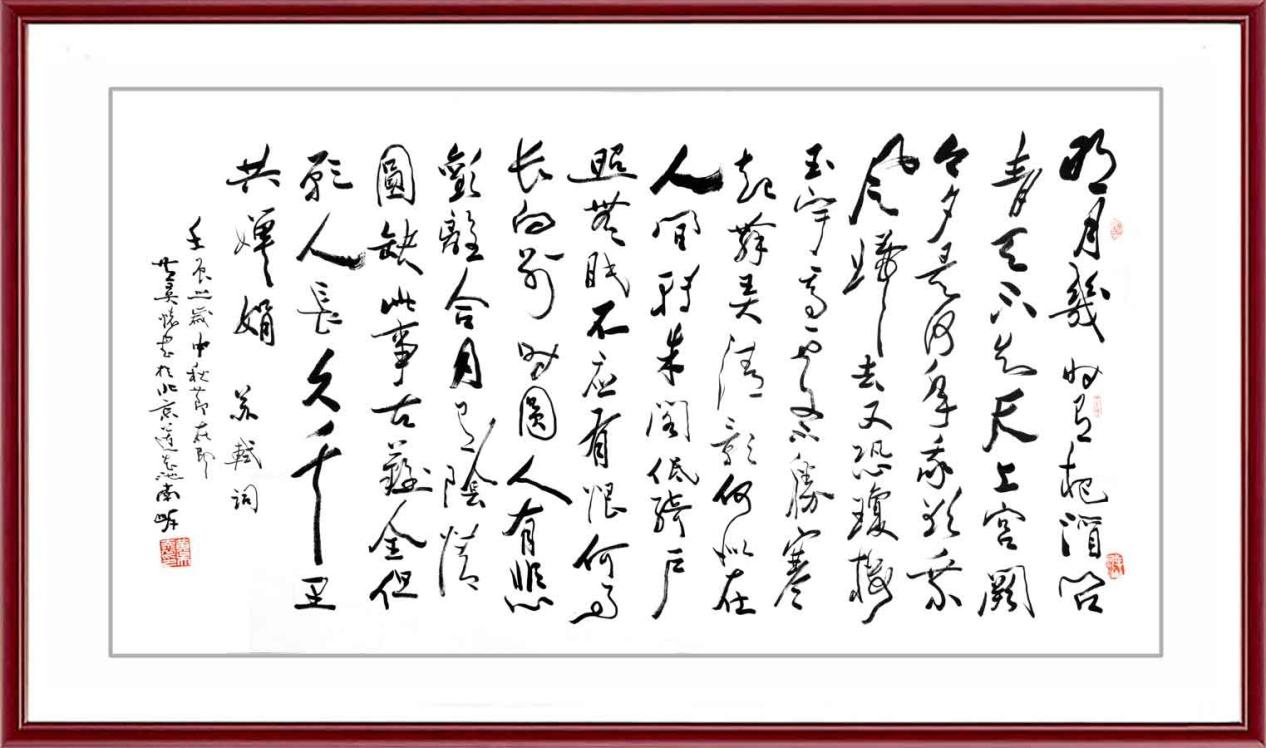 明月幾时有把酒问
青天不知天上宫阙
今夕是何年我欲乘
风归去又恐瓊楼
玉宇高处不勝寒
起舞弄清影何似在
人间转朱阁低绮户
照無眠不应有恨何事
长向别时圓人有悲
歡離合月有陰晴
圓缺此事古難全但
愿人長久千里
共婵娟 苏轼词
壬辰之歲中秋节在即
书於北京莲花池南畔